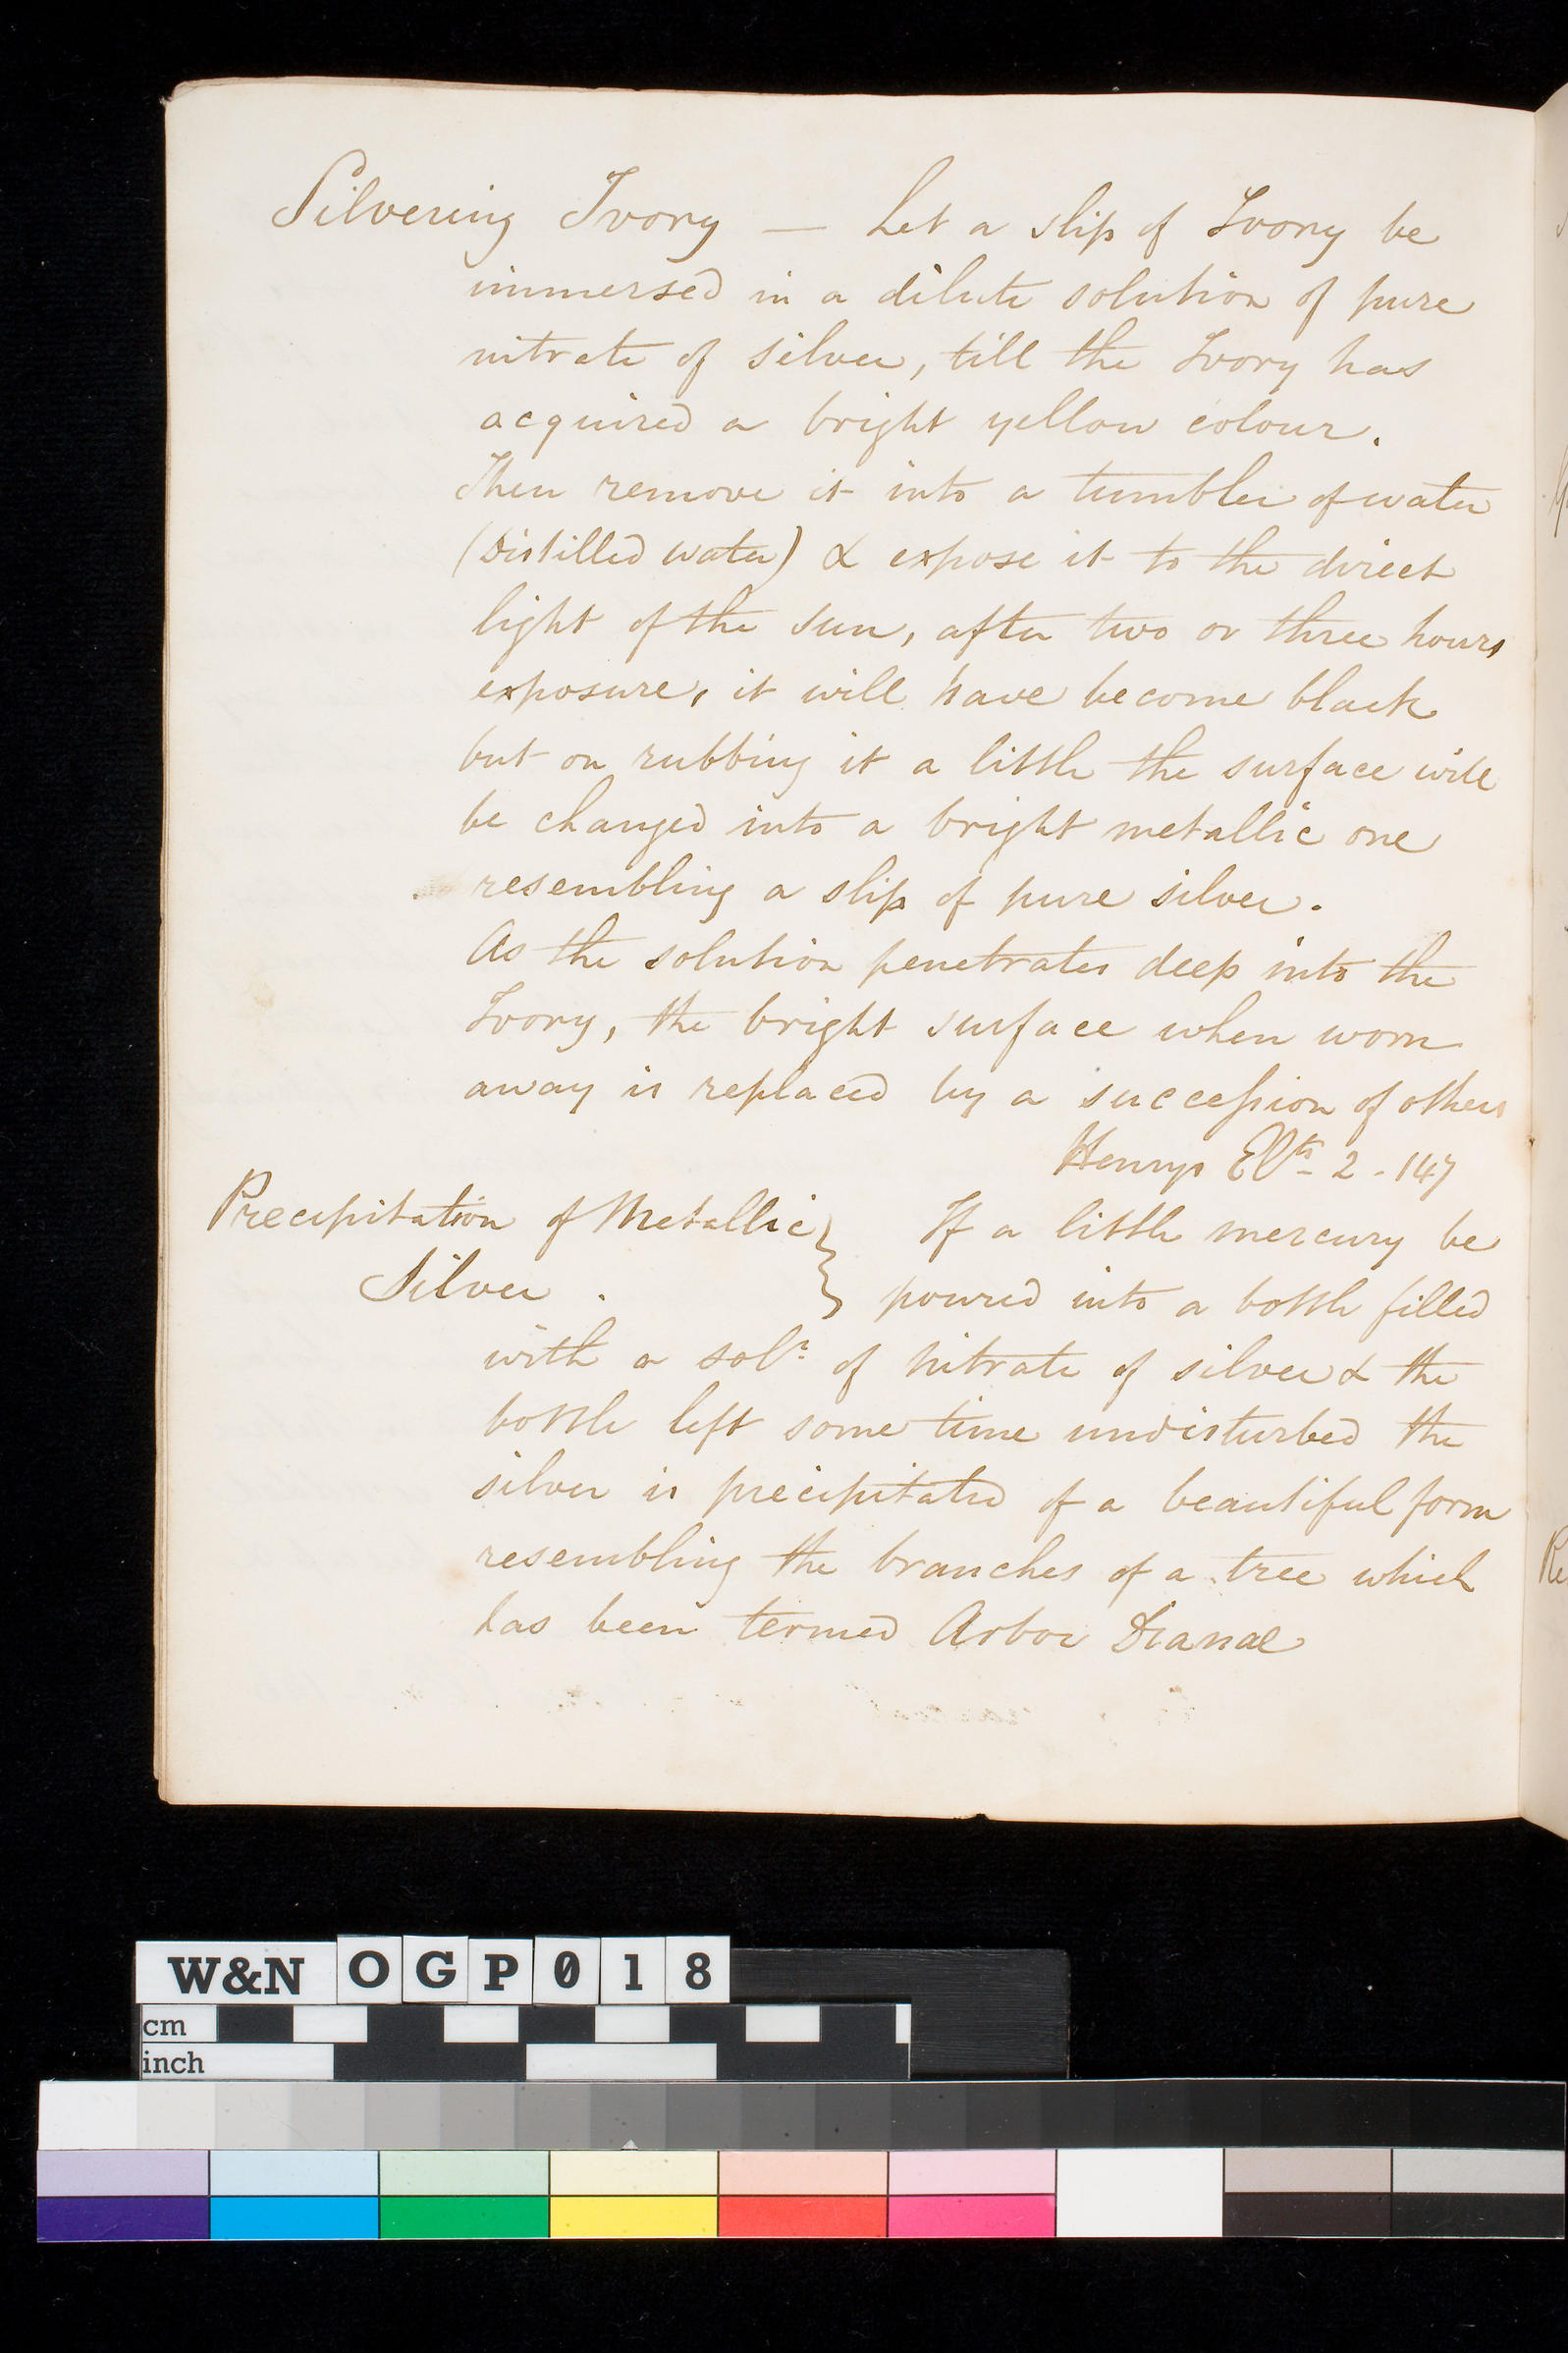 Silvering Ivory — Let a slip of Ivory be
immersed in a dilute solution of pure
nitrate of silver, till the Ivory has
acquired a bright yellow colour.
Then remove it into a tumbler of water
(Distilled water) & expose it to the direct
light of the sun, after two or three hours
exposure, it will have become black
but on rubbing it a little the surface will
be changed into a bright metallic one
resembling a slip of pure silver.
As the solution penetrates deep into the
Ivory, the bright surface when worn
away is replaced by a succession of others
Henrys 2 - 147
Precipitation of Metallic } If a little mercury be
Silver . poured into a bottle filled
with a soln. of nitrate of silver & the
bottle left some time undisturbed the
silver is precipitated of a beautiful form
resembling the branches of a tree which
has been termed Arbor Dianae
W&N OGP018
cm
inch